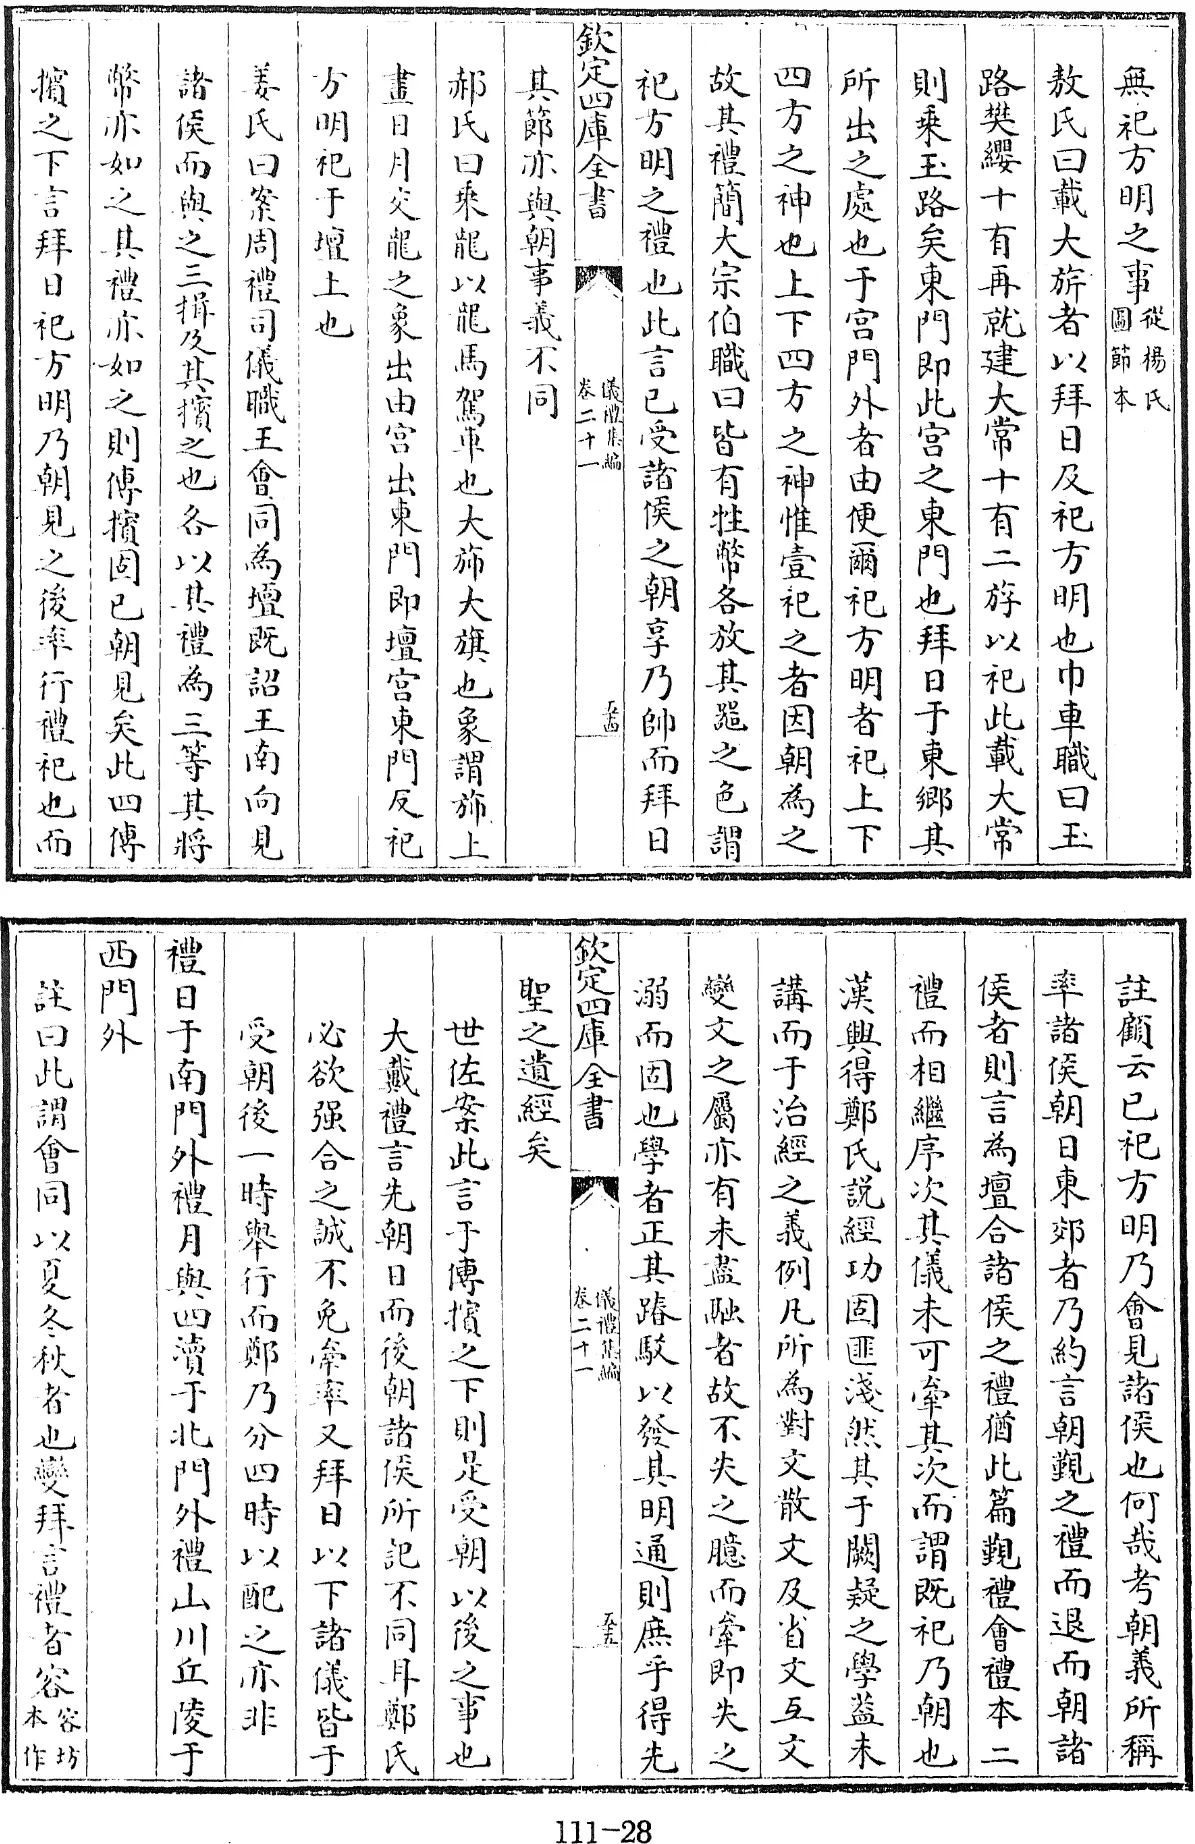 無祀方明之事從楊氏圖節本
敖氏曰載大旂者以拜日及祀方明也巾車職曰玉
路樊纓十有再就建大常十有二斿以祀此載大常
則乗玉路矣東門即此宮之東門也拜日于東郷其
所出之處也于宮門外者由便爾祀方明者祀上下
四方之神也上下四方之神惟壹祀之者因朝為之
故其禮簡大宗伯職曰皆有牲幣各放其噐之色謂
祀方明之禮也此言已受諸侯之朝享乃帥而拜日
欽定四庫全書
儀禮集編
卷二十一
五十四
其節亦與朝事義不同
郝氏曰乗龍以龍馬駕車也大斾大旗也象謂斾上
畫日月交龍之象出由宮出東門即壇宮東門反祀
方明祀于壇上也
姜氏曰案周禮司儀職王會同為壇既詔王南向見
諸侯而與之三揖及其擯之也各以其禮為三等其將
幣亦如之其禮亦如之則傳擯固已朝見矣此四傳
擯之下言拜日祀方明乃朝見之後率行禮祀也而
註顧云已祀方明乃會見諸侯也何哉考朝義所稱
率諸侯朝日東郊者乃約言朝覲之禮而退而朝諸
侯者則言為壇合諸侯之禮猶此篇覲禮會禮本二
禮而相繼序次其儀未可牽其次而謂既祀乃朝也
漢興得鄭氏説經功固匪淺然其于闕疑之學葢未
講而于治經之義例凡所為對文散文及省文互文
變文之屬亦有未盡融者故不失之臆而牽即失之
溺而固也學者正其踳駮以發其明通則庶乎得先
欽定四庫全書
儀禮集編
卷二十一
五十五
聖之遺經矣
世佐案此言于傳擯之下則是受朝以後之事也
大戴禮言先朝日而後朝諸侯所記不同耳鄭氏
必欲强合之誠不免牽率又拜日以下諸儀皆于
受朝後一時舉行而鄭乃分四時以配之亦非
禮日于南門外禮月與四瀆于北門外禮山川丘陵于
西門外
註曰此謂會同以夏冬秋者也變拜言禮者容客坊本作
111-28